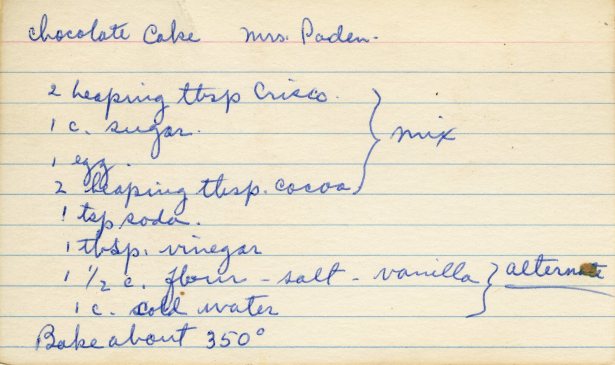 chocolate Cake Mrs. Paden.
2 heaping tbsp Crisco.
1 c. sugar.
1 egg.
mix
2 heaping tbsp. cocoa
1 tsp soda.
1 tbsp. vinegar
1 1/2 c. flour - salt - vanilla
alternate
1 c. cold water
Bake about 350°